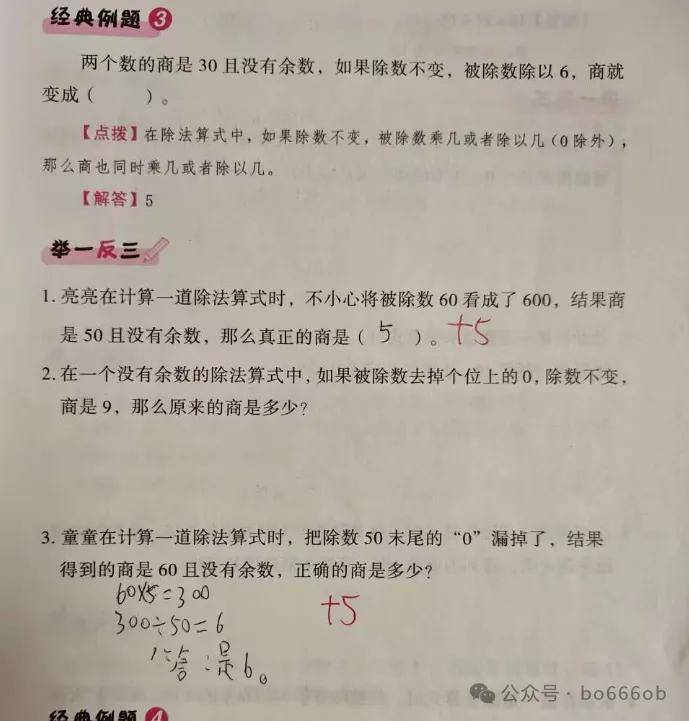 经典例题3
两个数的商是30且没有余数，如果除数不变，被除数除以6，商就
变成（ ）。
【点拨】在除法算式中，如果除数不变，被除数乘几或者除以几（0除外），
那么商也同时乘几或者除以几。
【解答】5
举一反三
1. 亮亮在计算一道除法算式时，不小心将被除数60看成了600，结果商
是50且没有余数，那么真正的商是（ 5 ）。+5
2. 在一个没有余数的除法算式中，如果被除数去掉个位上的0，除数不变，
商是9，那么原来的商是多少？
3. 童童在计算一道除法算式时，把除数50末尾的“0”漏掉了，结果
得到的商是60且没有余数，正确的商是多少？
60×5=300
+5
300÷50=6
答：是6。
公众号·bo666ob
经典例题4